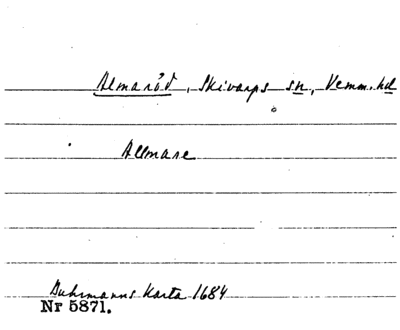 Almaröd, Skivarps sn, Vemm. hd
Allmare
Buhrmanns Karta 1684
Nr 5871.